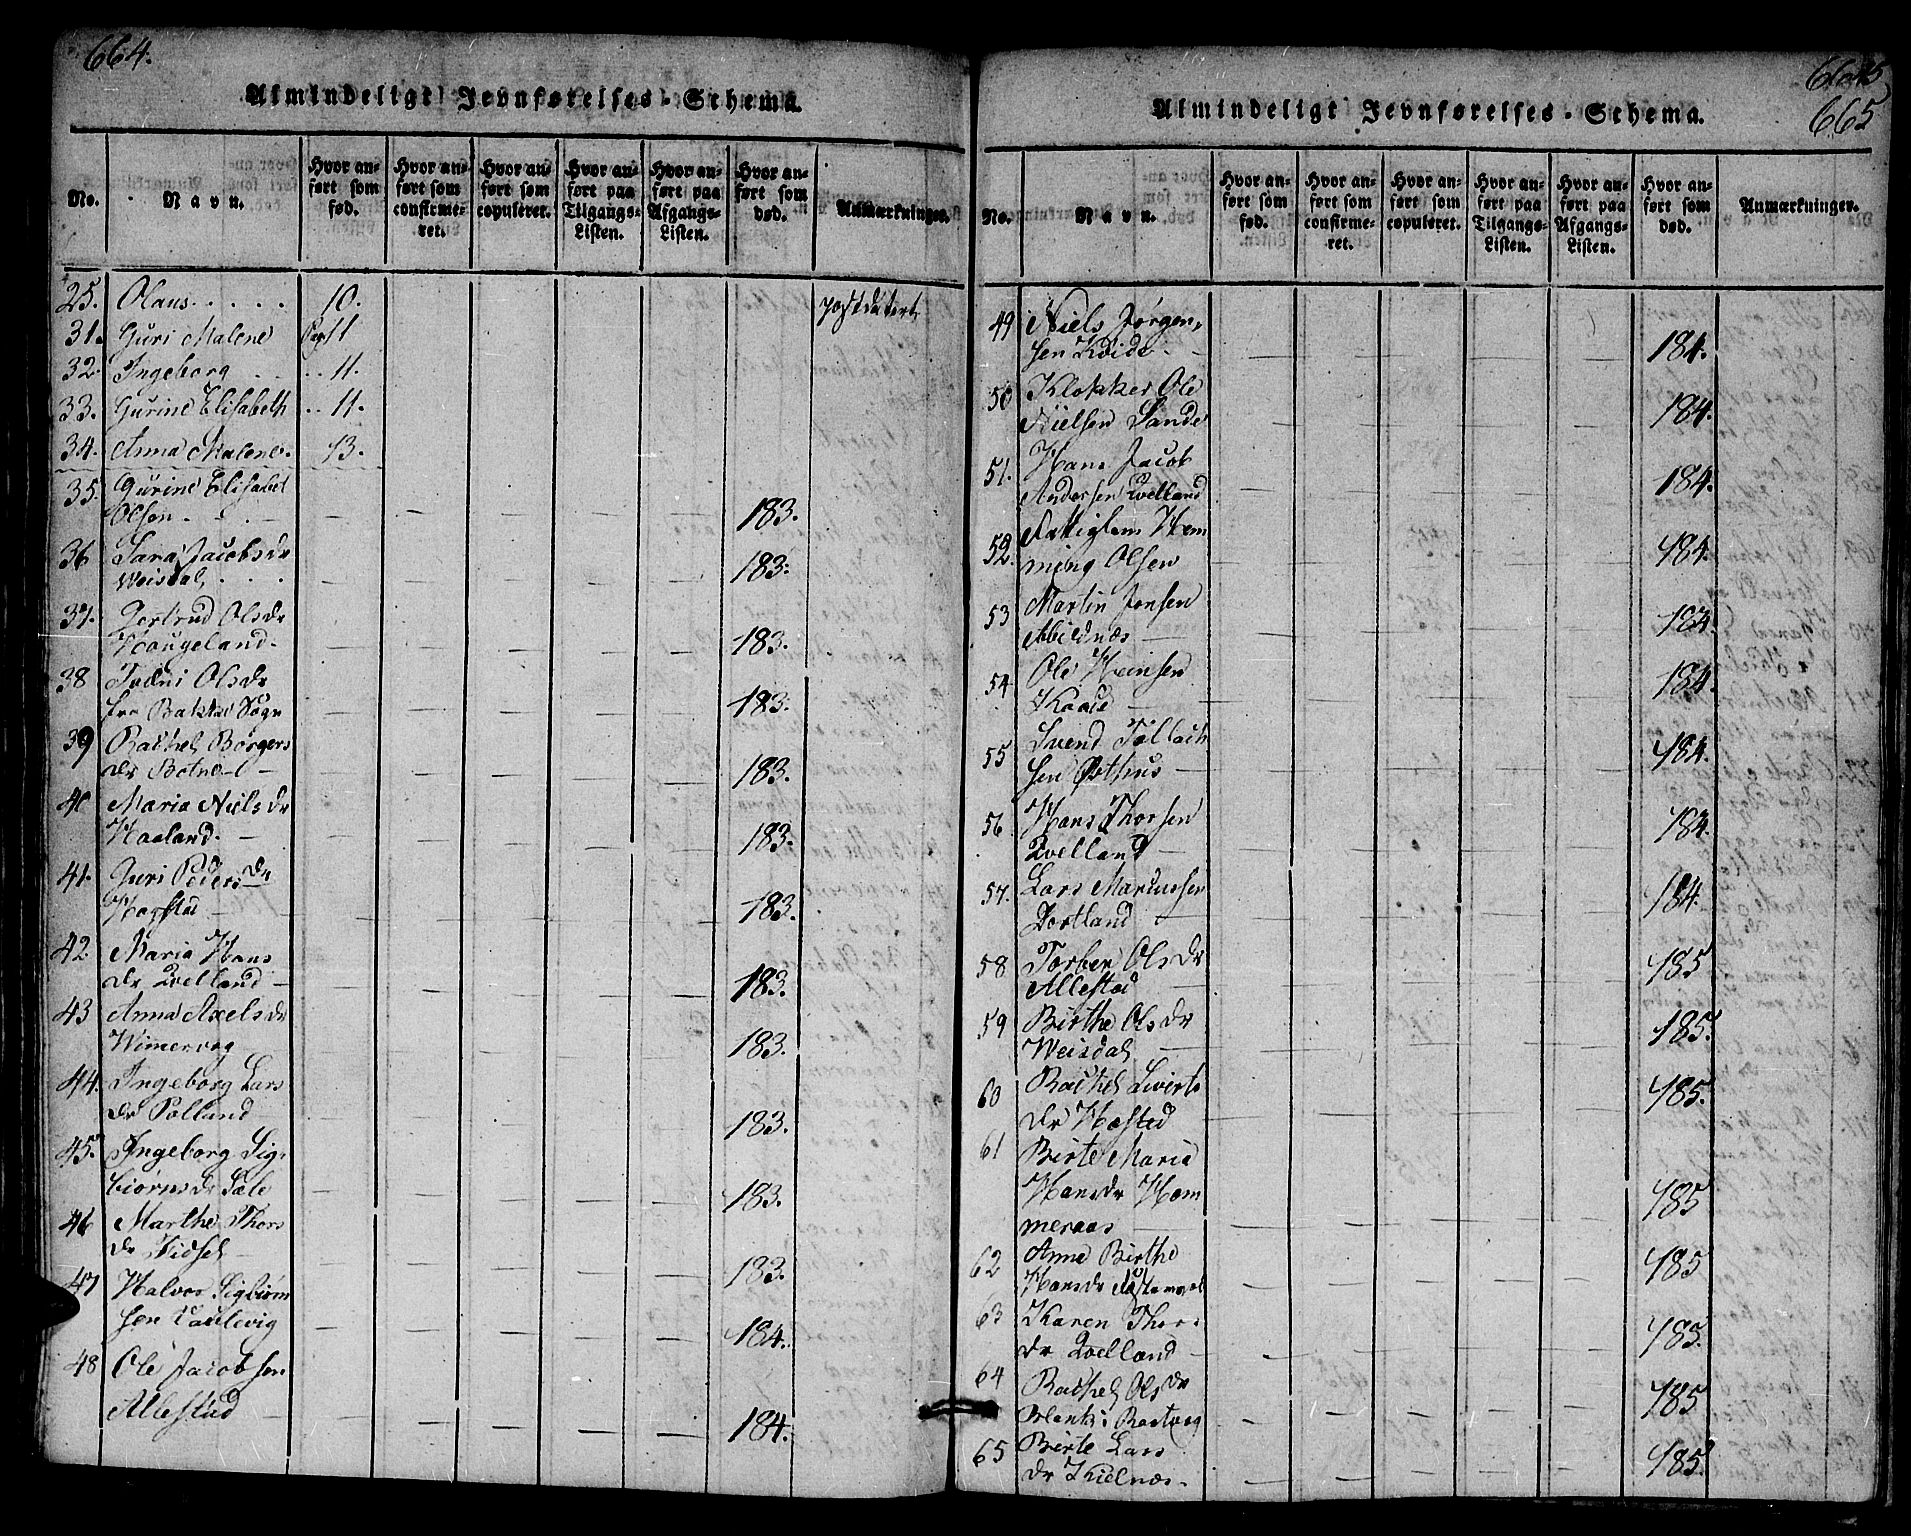 664.
Almindeligt Jevnførelses-Schema.
No.
Navn.
Hvor an-
ført som
fød.
Hvor an-
ført som
confirme-
ret.
Hvor an-
ført som
copuleret.
Hvor an-
ført paa
Tilgangs-
Listen.
Hvor an-
ført paa
Afgangs-
Listen.
Hvor an-
ført som
død.
Anmærkninger.
25. Olaus 10. postdatert
31. Guri Malene Pag 11
32. Ingeborg 11.
33. Gurine Elisabeth 11.
34. Anna Malene. 13.
35. Gurine Elisabet
Olsen 183.
36 Sara Jacobsdr
Weisdal 183.
37. Gertrud Olsdr
Haugeland. 183.
38 Olsdr
fra Bakke Sogn 183.
39 Rachel Børgers
dr Botne 183.
40 Maria Nielsdr
Haaland. 183.
41. Guri Peders dr
Hogstad 183.
42. Maria Hans
dr Qvelland 183.
43 Anna Axelsdr
183.
44. Ingeborg Lars
dr 183.
45. Ingeborg Sig-
biørnsdr Sæle 183.
46 Marthe Thors
dr Sidsel 183.
47 Halvor Sigbiørn
sen 184.
48 Ole Jacobsen
Allestad 184.
665
665
Almindeligt Jevnførelses-Schema.
No.
Navn.
Hvor an-
ført som
fød.
Hvor an-
ført som
confirme-
ret.
Hvor an-
ført som
copuleret.
Hvor an-
ført paa
Tilgangs-
Listen.
Hvor an-
ført paa
Afgangs-
Listen.
Hvor an-
ført som
død.
Anmærkninger.
49 Niels Jørgen-
sen 184.
50 Klokker Ole
Nielsen Sande 184.
51. Hans Jacob
Andersen Qvelland 184.
52. Fattiglem Hem
ming Olsen 184.
53 Martin Jensen
Abildnæs 184.
54 Ole Heinsen
184.
55 Svend Tallach
sen 184.
56. Hans Thorsen
Qvelland 184.
57. Lars Marcussen
184
58 Torber Olsdr
Allestad 185
59 Birthe Olsdr
Weisdal 185.
60 Rachel Siverts
dr 185.
61 Birte Maria
Hansdr Ham
meraas 185
62 Anne Birthe
Hansdr 185
63 Karen Thors
dr Qvelland 185.
64 Rachel Olsdr
185
65 Birte Lars
dr Kielnæs. 185.